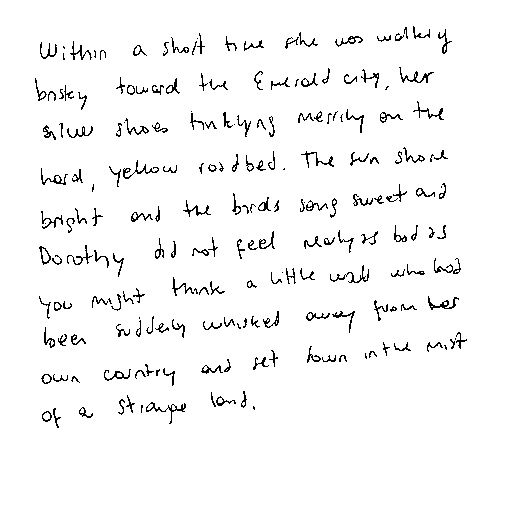 Within a short time she was walking
briskly toward the Emerald City, her
silver shoes tinkling merrily on the
hard, yellow roadbed. The sun shone
bright and the birds sang sweet and
Dorothy did not feel nearly as bad as
you might think a little who had
been suddenly whisked away from her
own country and set down in the mist
of a strange land.